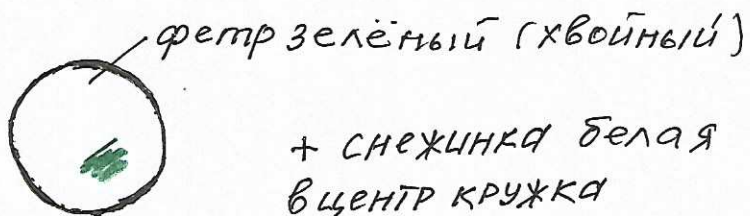 фетр зелёный (хвойный)
+ снежинка белая
в центр кружка